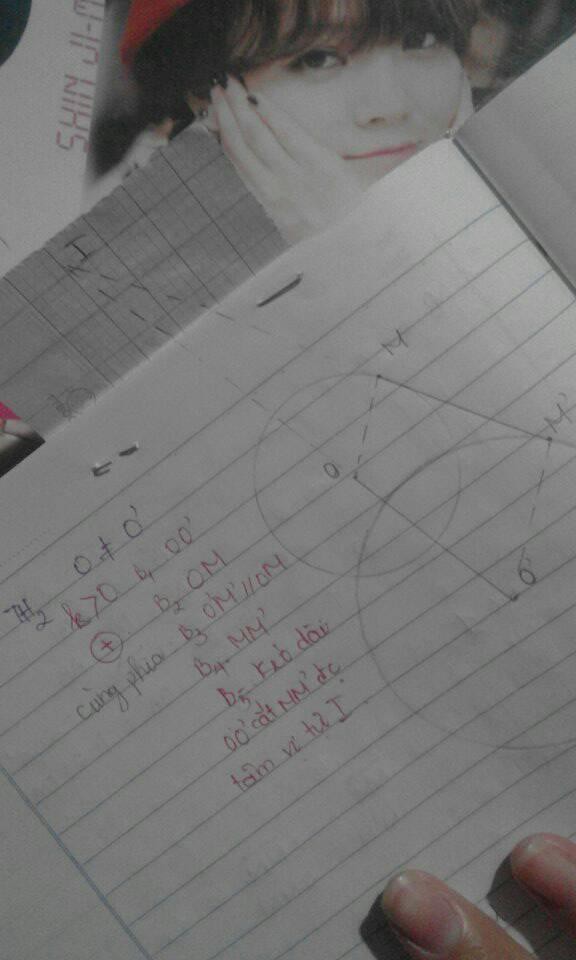 SHIN JI-M
I
M
M'
O
O'
TH2 O ≠ O'
k>0 B1 OO'
+ B2 OM
cùng phía B3 O'M' // OM
B4 MM'
B5 kéo dài
OO' cắt MM' đc
tâm vị tự I